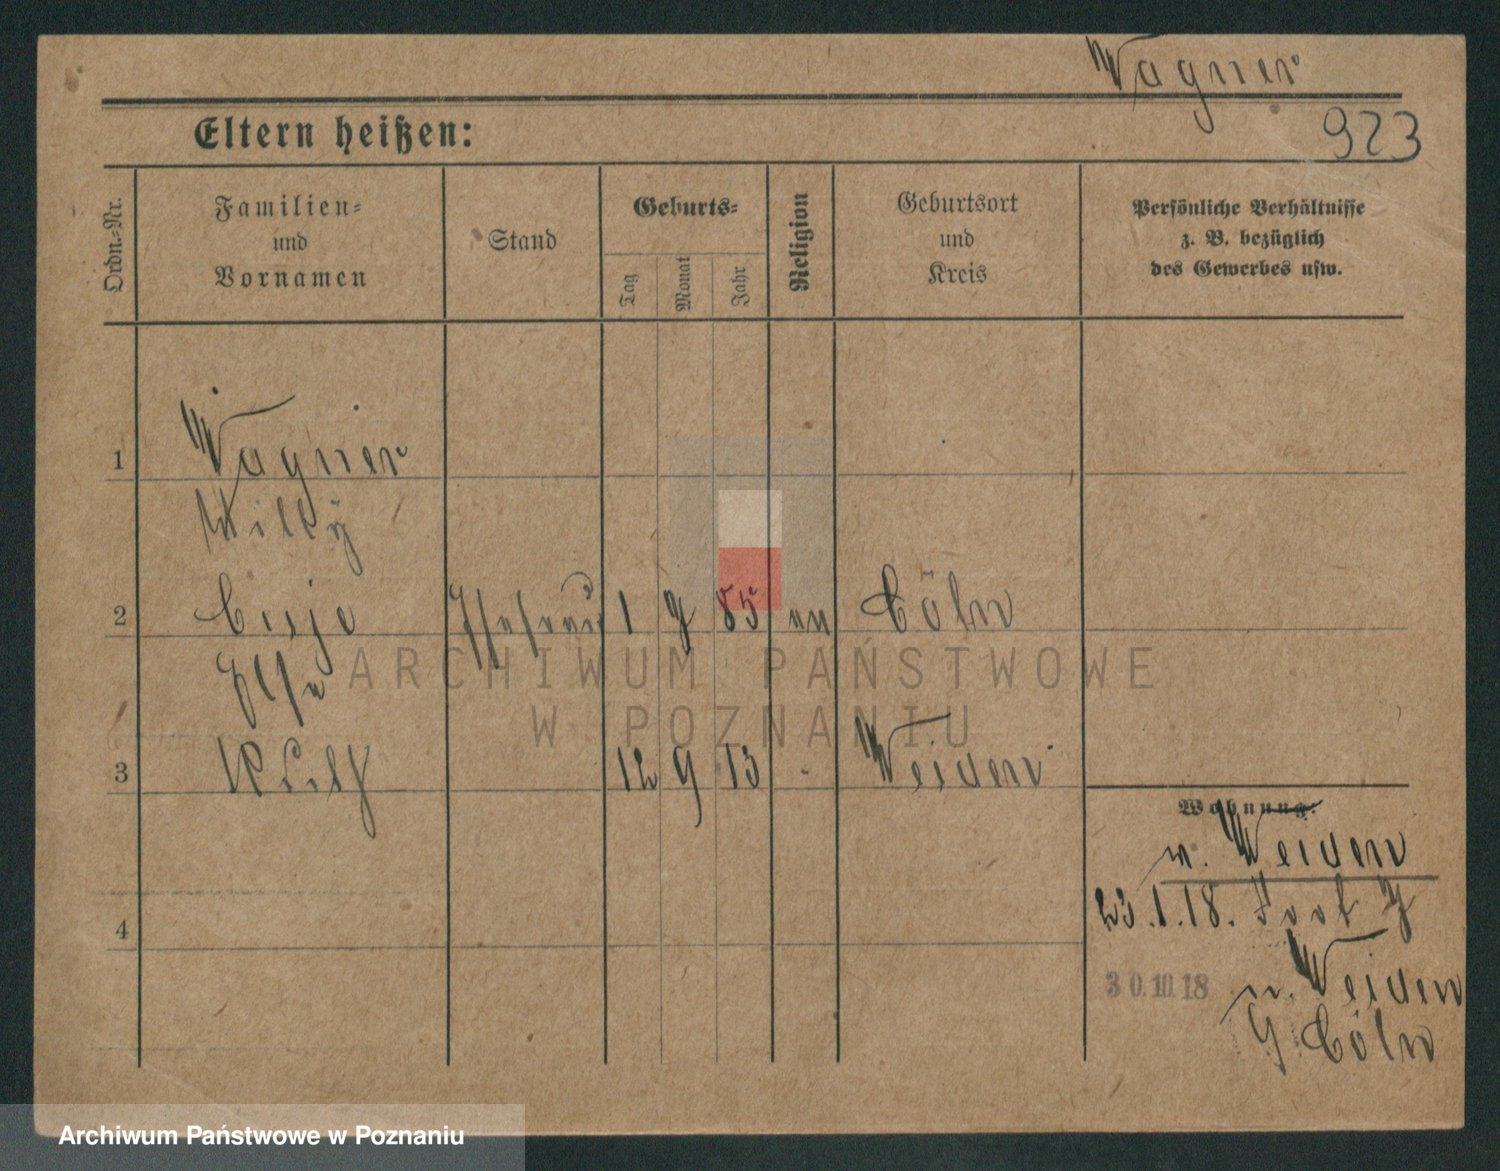 Wagner
923
Eltern heißen:
Ordn.-Nr.
Familien-
und
Vornamen
Stand
Geburts-
Tag
Monat
Jahr
Religion
Geburtsort
und
Kreis
Persönliche Verhältnisse
z. B. bezüglich
des Gewerbes usw.
1 Wagner
Willÿ
2 Ehefrau 1 85 Cöln
Else
ARCHIWUM PAŃSTWOWE
W POZNANIU
3 Rolf 12 9 13 Weiden
Wohnung.
n. Weiden
23.1.18.
4
30.10.18 n. Weiden
Cöln
Archiwum Państwowe w Poznaniu